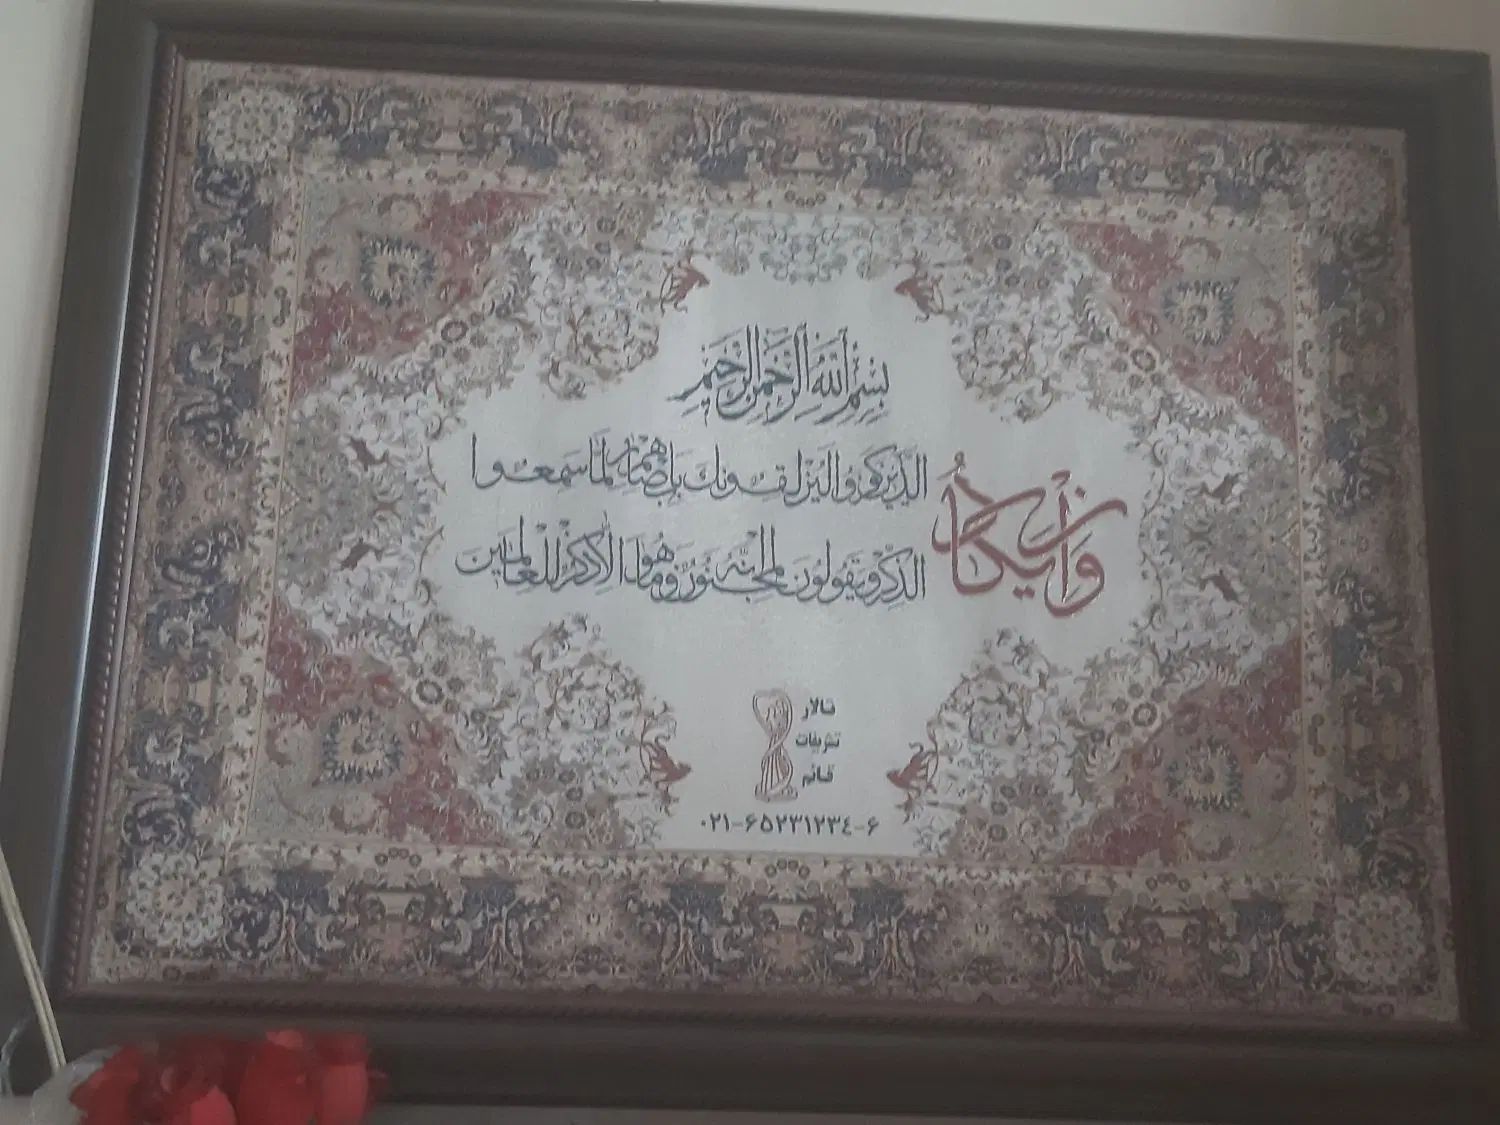 بِسْمِ اللَّهِ الرَّحْمنِ الرَّحِيمِ
وَ إِنْ يَكَادُ
الَّذِينَ كَفَرُوا لَيُزْلِقُونَكَ بِأَبْصَارِهِمْ لَمَّا سَمِعُوا
الذِّكْرَ وَ يَقُولُونَ إِنَّهُ لَمَجْنُونٌ وَ مَا هُوَ إِلَّا ذِكْرٌ لِلْعَالَمِينَ
تالار
تشریفات
قائم
۰۲۱-۶۵۲۳۱۲۳۴-۶